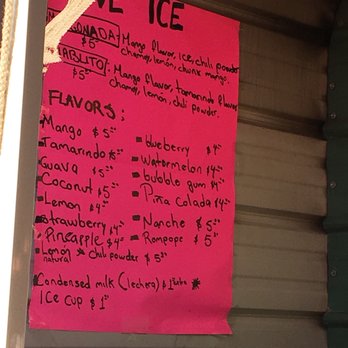 ICE
$5
Mango flavor, ice, chili powder
chamoy, lemon, chunx mango.
$5
Mango flavor, tamarindo flavor
chamoy, lemon, chili powder.
FLAVORS:
Mango $5
Tamarindo $5
Guava $5
Coconut $5
Lemon $4
Strawberry $4
Pineapple $4
Lemon natural chili powder $5
blueberry $4
Watermelon $4
bubble gum $4
Piña colada $4
Nanche $5
Rompope $5
Condensed milk (lechera) $1
ICE CUP $1